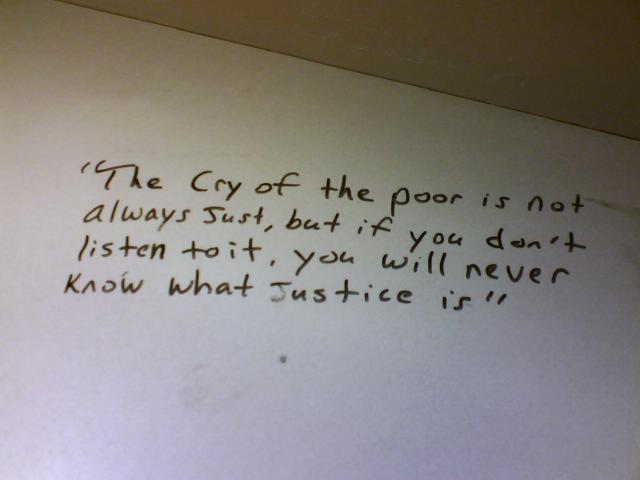 "The Cry of the poor is not
always Just, but if you don't
listen to it, you will never
know what Justice is"